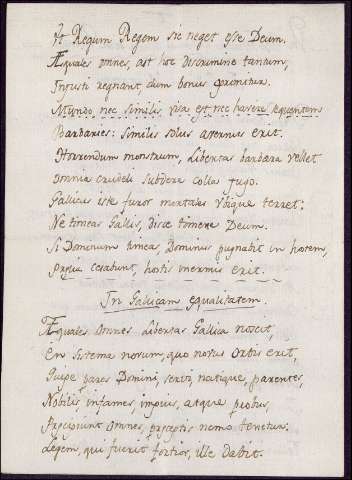 At Regum Regem sic neget esse Deum.
Æquales omnes, ast hoc discrimine tantum,
Injusti regnant, dum bonus opprimitur.
Mundo, nec similis, visa est, nec habere sequentem
Barbaries: Similis solus avernus erit.
Horrendum monstrum, Libertas barbara vellet
Omnia crudeli subdere colla jugo.
Gallicus iste furor mortales ubique terret:
Ne timeas Gallos, disce timere Deum.
Si Dominum timeas, Dominus pugnabit in hostem,
Prælia cessabunt, hostis inermis erit.
In Gallicam equalitatem.
Æquales Omnes Libertas Gallica noscit,
En Sistema novum, quo novus Orbis erit,
Quipe pares Domini, servi, natique, parentes,
Nobilis infames, impius, atque probus,
Præcipiunt Omnes, præceptis nemo tenetur.
Legem, qui fuerit fortior, ille dabit.